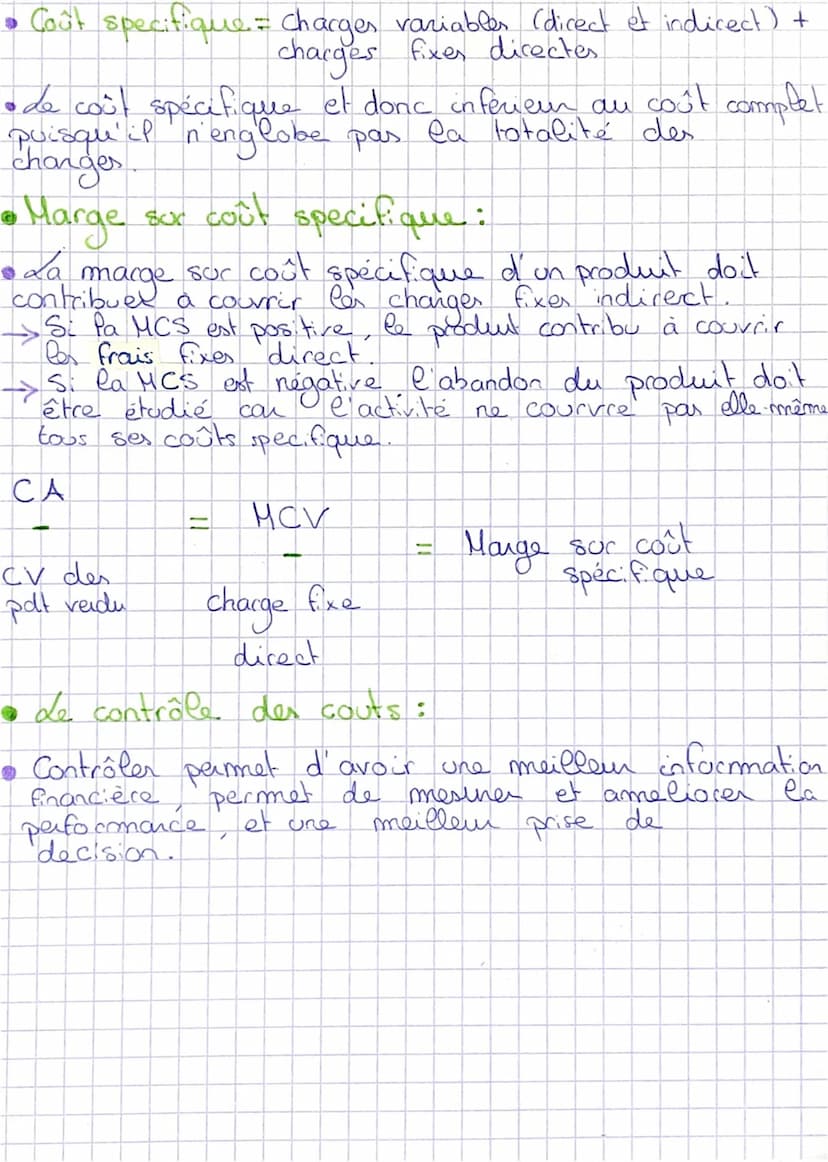 • Coût specifique = Charges variables (direct et indirect) +
charges fixes directes
• Le coût spécifique et donc inférieur au coût complet
puisqu'il n'englobe pas la totalité des
charges.
• Marge sur coût specifique :
• La marge sur coût spécifique d'un produit doit
contribuer à couvrir les charges fixes indirect.
→ Si la MCS est positive, le produit contribu à couvrir
les frais fixes direct.
→ Si la MCS est négative l'abandon du produit doit
être étudié car l'activité ne couvre pas elle-même
tous ses coûts specifique.
CA
- = MCV
- = Marge sur coût
spécifique
CV des
pdt vendu charge fixe
direct
• Le contrôle des couts :
• Contrôler permet d'avoir une meilleur information
financière, permet de mesurer et ameliorer la
performance, et une meilleur prise de
decision.